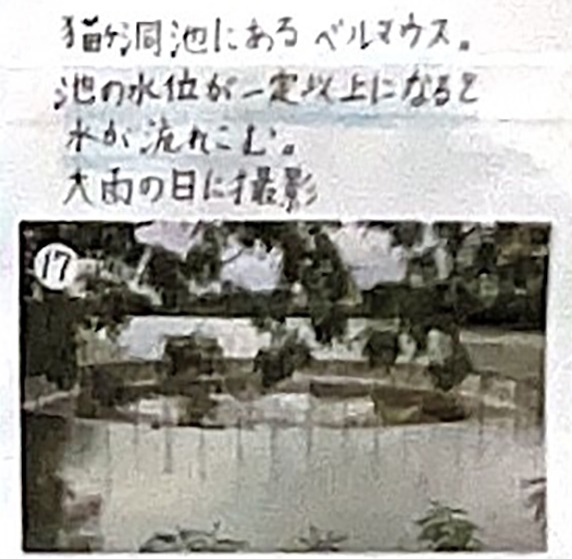 猫ヶ洞池にあるベルマウス。
池の水位が一定以上になると
水が流れこむ。
大雨の日に撮影
17